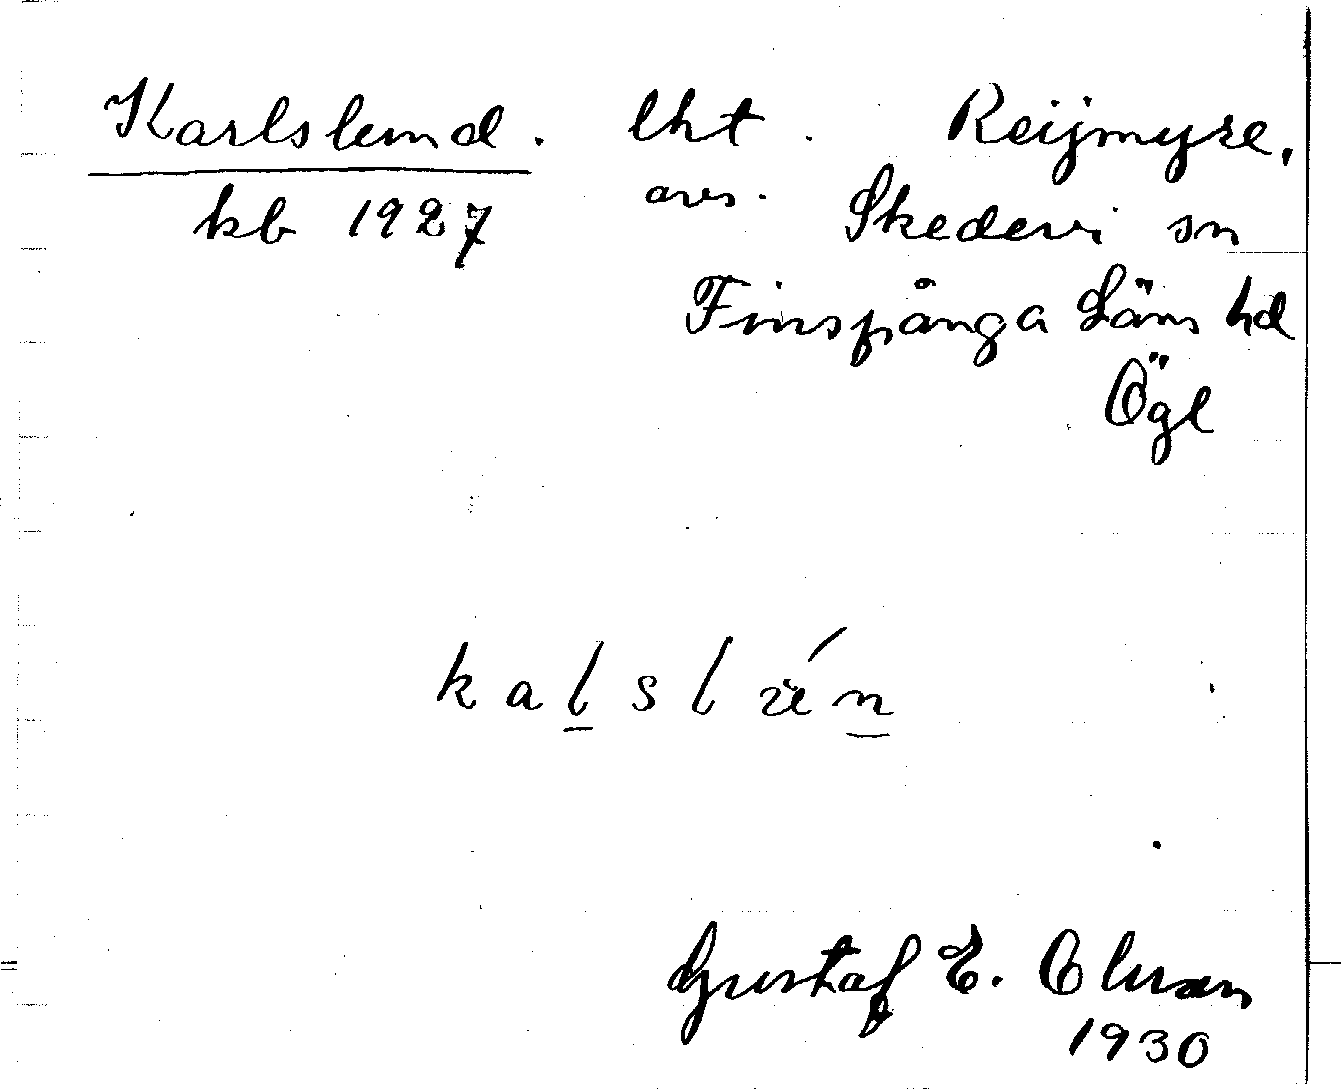 Karlslund. lht. Reijmyre,
kb 1927 avs. Skedevi sn
Finspånga Läns hd
Ögl
kalslún
Gustaf E. Olsson
1930